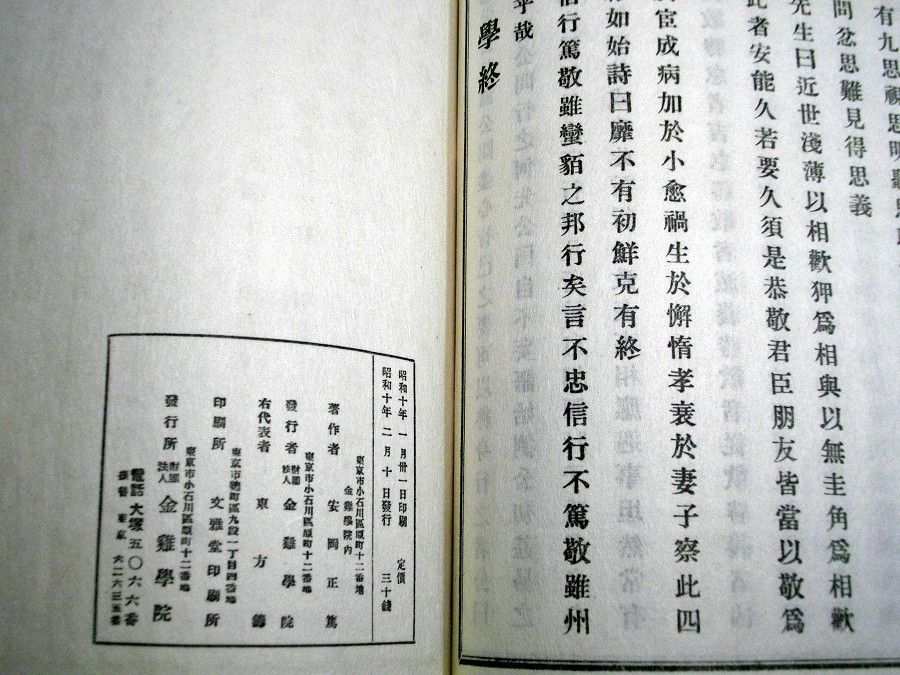 有九思視思明聽思
問忿思難見得思義
先生曰近世淺薄以相歡狎爲相與以無圭角爲相歡
此者安能久若要久須是恭敬君臣朋友皆當以敬爲
宦成病加於小愈禍生於懈惰孝衰於妻子察此四
如始詩曰靡不有初鮮克有終
信行篤敬雖蠻貊之邦行矣言不忠信行不篤敬雖州
乎哉
學終
昭和十年一月卅一日印刷 定價
昭和十年二月十日發行 三十錢
東京市小石川區原町十二番地
金雞學院內
著作者 安岡正篤
東京市小石川區原町十二番地
發行者 財團法人 金雞學院
右代表者 東方籌
東京市麴町區九段一丁目四番地
印刷所 文雅堂印刷所
東京市小石川區原町十二番地
發行所 財團法人 金雞學院
電話大塚五〇六六番
振替東京六二六三五番